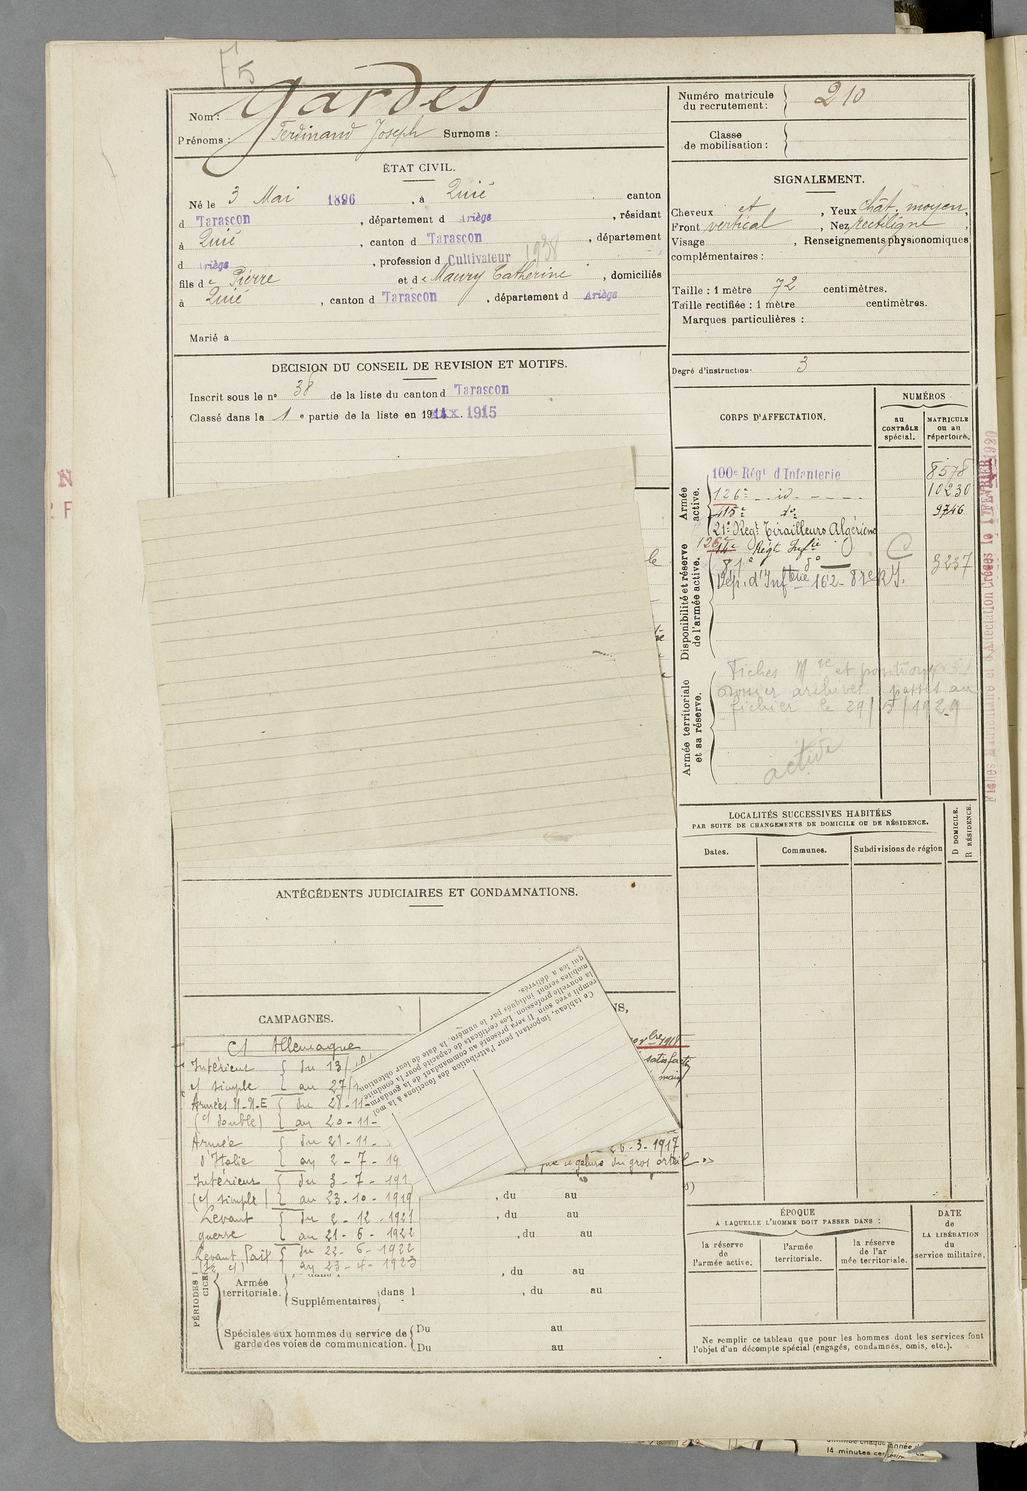 F5
Nom: Gardes
Prénoms: Ferdinand Joseph Surnoms:
ÉTAT CIVIL.
Né le 3 Mai 1896, à Quié canton
d Tarascon, département d Ariège, résidant
à Quié, canton d Tarascon, département
d Ariège, profession d Cultivateur 1938
fils de Pierre et de Maury Catherine, domiciliés
à Quié, canton d Tarascon, département d Ariège
Marié à
DÉCISION DU CONSEIL DE REVISION ET MOTIFS.
Inscrit sous le n° 38 de la liste du canton d Tarascon
Classé dans la 1e partie de la liste en 1915
ANTÉCÉDENTS JUDICIAIRES ET CONDAMNATIONS.
CAMPAGNES.
Ct Allemagne
Intérieur { du 13/
ct simple { au 27/
Armées N-N-E { du 28-11-
(ct double) { au 20-11-
Armée { du 21-11-
d'Italie { au 2-7-19
Intérieur { du 3-7-191
(ct simple) { au 23-10-1919
Levant { du 2-12-1921
guerre { au 21-6-1922
Levant Paix { du 22-6-1922
au 23-4-1923
NS,
26-3-1917
gelure du gros orteil
Ce tableau, important pour l'attribution des fonctions à la mo
mobiles seront indiqués par le numéro, la date de leur obtention
qui les a délivrés.
, du au
, du au
, du au
, du au
dans l , du au
PÉRIODES
Armée territoriale.
Supplémentaires
Spéciales aux hommes du service de garde des voies de communication. { Du au
{ Du au
Numéro matricule du recrutement: 210
Classe de mobilisation:
SIGNALEMENT.
Cheveux et, Yeux chât. moyen,
Front vertical, Nez rectiligne,
Visage, Renseignements physionomiques
complémentaires:
Taille: 1 mètre 72 centimètres.
Taille rectifiée: 1 mètre centimètres.
Marques particulières:
Degré d'instruction: 3
CORPS D'AFFECTATION.
NUMÉROS
au CONTRÔLE spécial.
MATRICULE ou au répertoire.
Armée active.
100e Régt d'Infanterie 8578
126e - id - 10230
115e do 9746
21e Regt Tirailleurs Algériens
Disponibilité et réserve de l'armée active.
126e Régt Infie C
81e do 3237
Dép. d'Infterie 162- 81e R.I.
Armée territoriale et sa réserve.
Fiches Mle et position
Dossier archives passés au
fichier le 29/5/1929
active
LOCALITÉS SUCCESSIVES HABITÉES
PAR SUITE DE CHANGEMENTS DE DOMICILE OU DE RÉSIDENCE.
Dates.
Communes.
Subdivisions de région
D DOMICILE.
R RÉSIDENCE.
ÉPOQUE
A LAQUELLE L'HOMME DOIT PASSER DANS:
la réserve de l'armée active.
l'armée territoriale.
la réserve de l'armée territoriale.
DATE de LA LIBÉRATION du service militaire.
Ne remplir ce tableau que pour les hommes dont les services font
l'objet d'un décompte spécial (engagés, condamnés, omis, etc.).
14 minutes